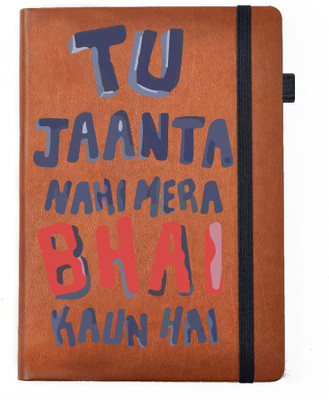 TU
JAANTA
NAHI MERA
BHAI
KAUN HAI